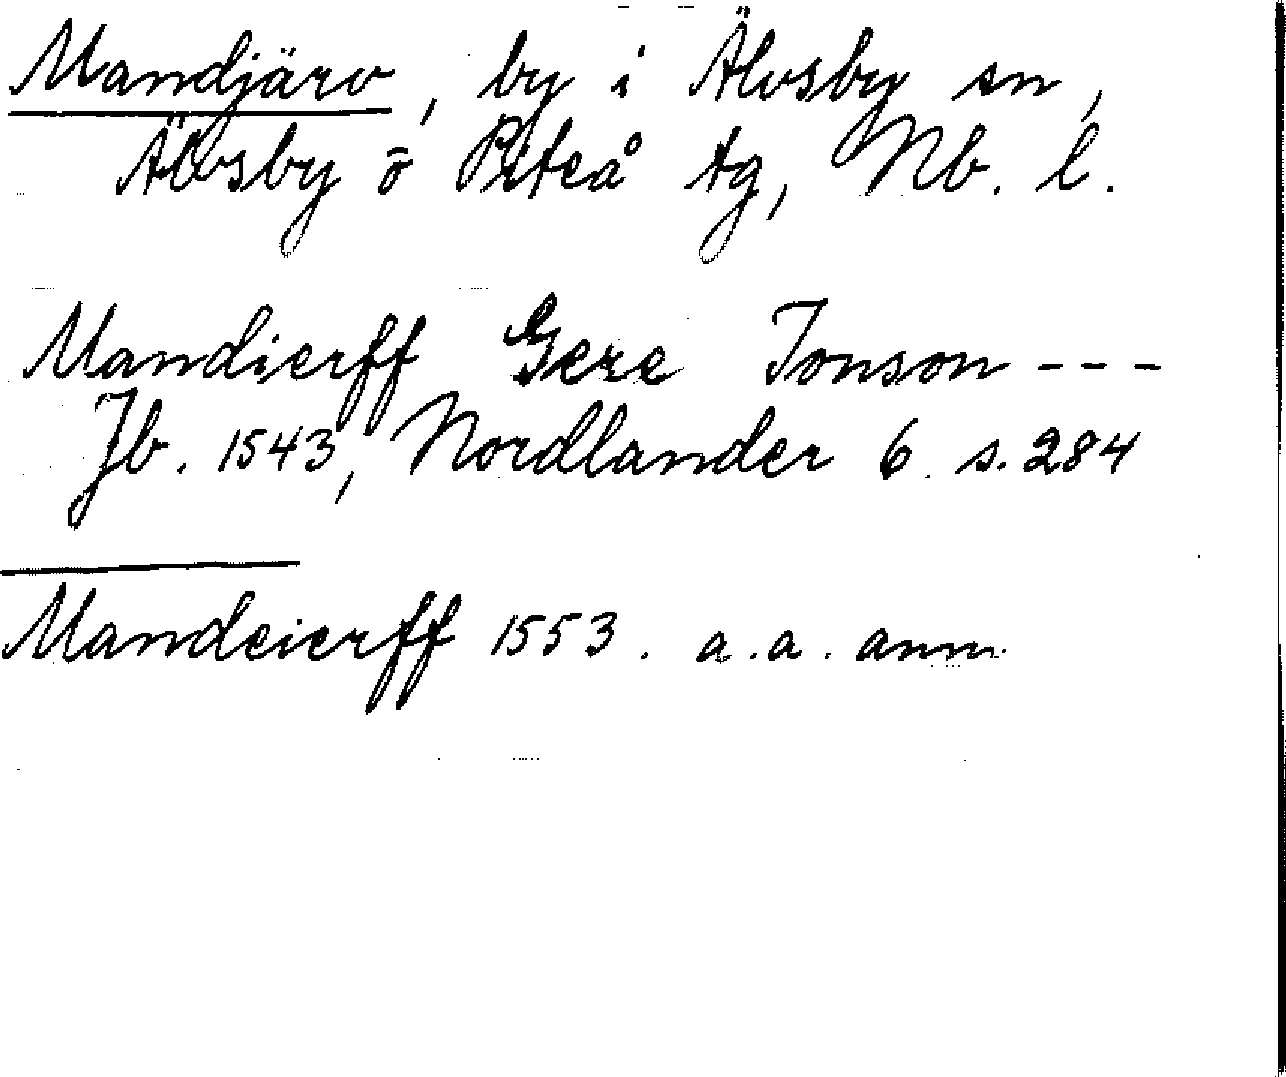 Mandjärv, by i Älvsby sn,
Älvsby o Piteå tg, Nb. l.
Mandierff Gere Jonson ---
Jb. 1543, Nordlander 6 s. 284
Mandeierff 1553. a.a. anm.